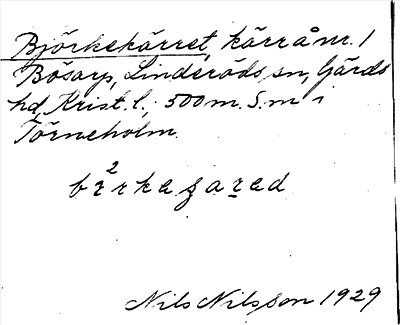 Björkekärret, kärr å nr. 1
Bösarp, Linderöds sn, Gärds
hd, Krist. l., 500 m. S. m i
Törneholm.
Nils Nilsson 1929